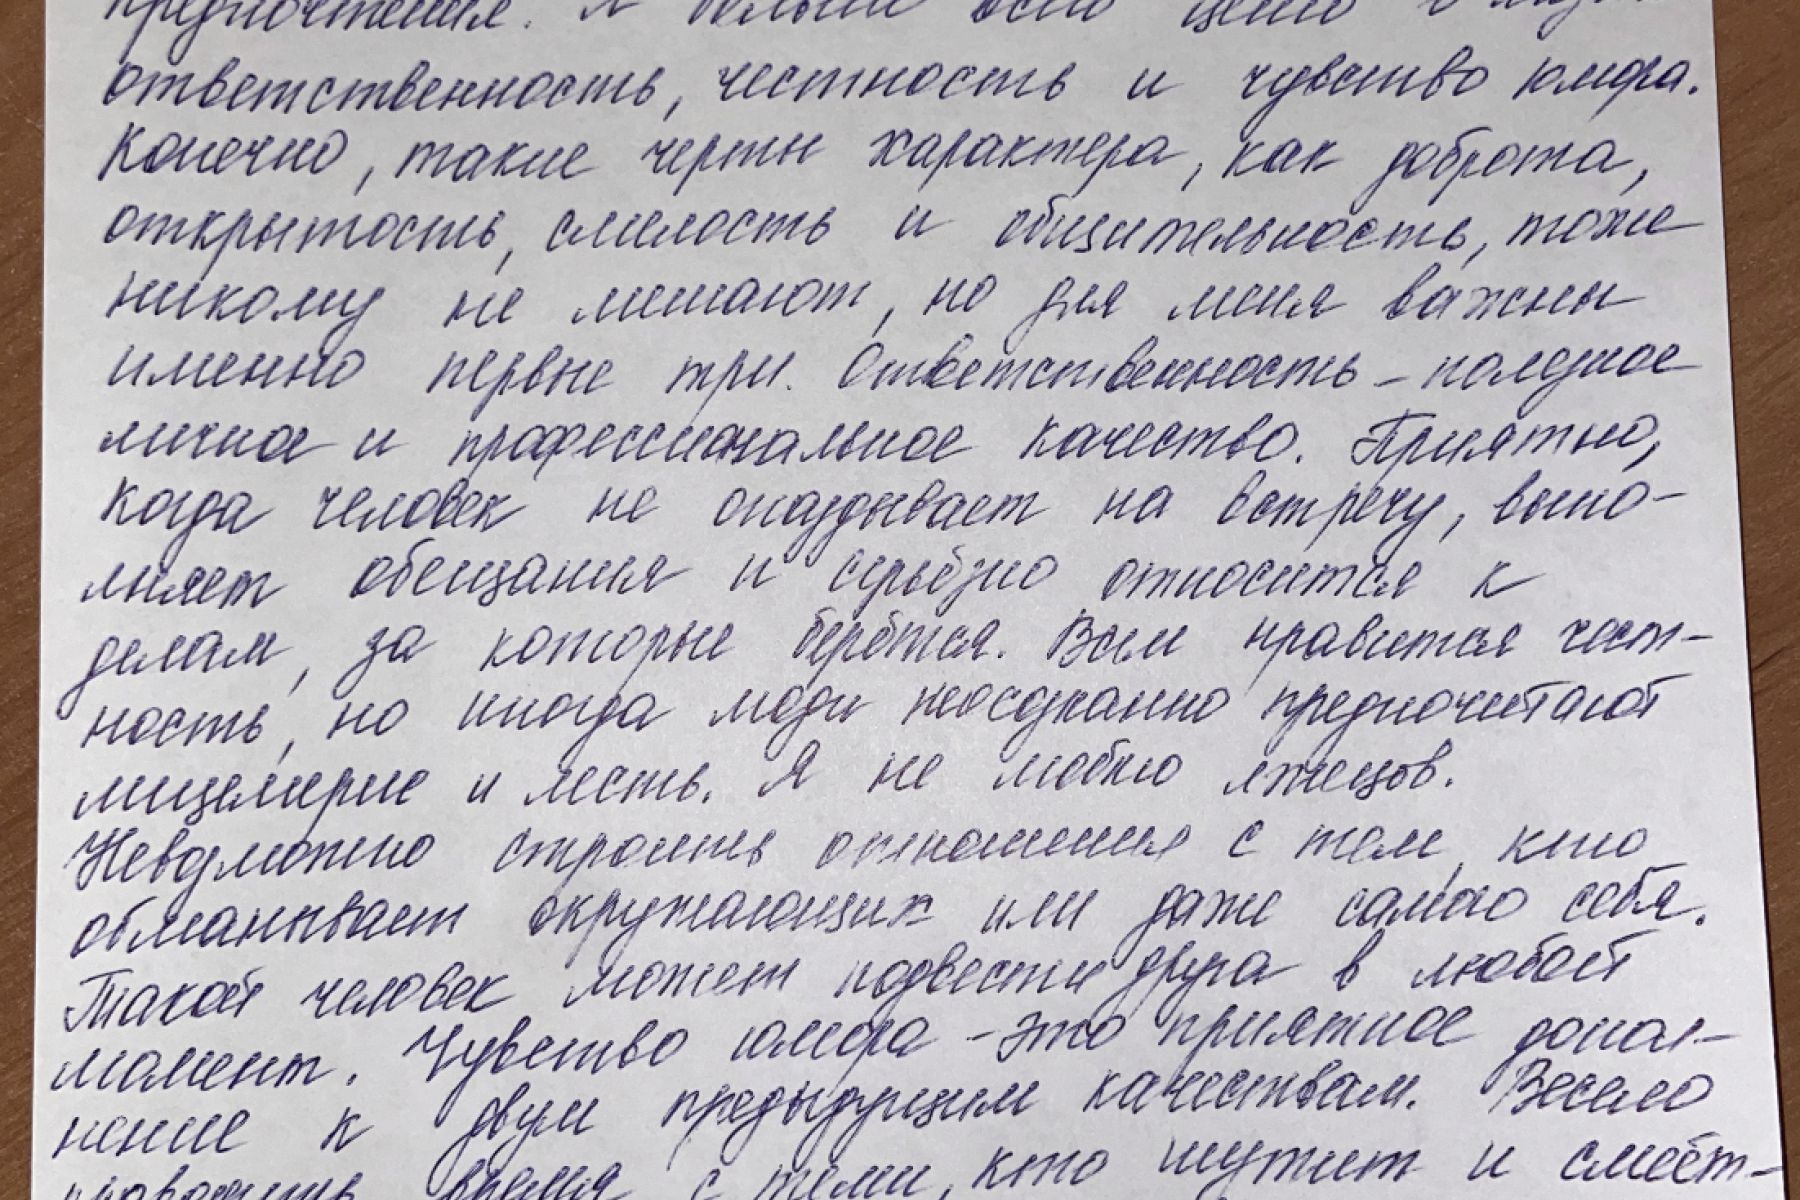 предпочтения. Я больше всего ценю в людях
ответственность, честность и чувство юмора.
Конечно, такие черты характера, как доброта,
открытость, смелость и общительность, тоже
никому не мешают, но для меня важны
именно первые три. Ответственность – полезное
личное и профессиональное качество. Приятно,
когда человек не опаздывает на встречу, выпо-
лняет обещания и серьёзно относится к
делам, за которые берётся. Всем нравится чест-
ность, но иногда люди неосознанно предпочитают
лицемерие и лесть. Я не люблю лжецов.
Невозможно строить отношения с тем, кто
обманывает окружающих или даже самого себя.
Такой человек может подвести друга в любой
момент. Чувство юмора – это приятное допол-
нение к двум предыдущим качествам. Весело
проводить время с теми, кто шутит и смеёт-